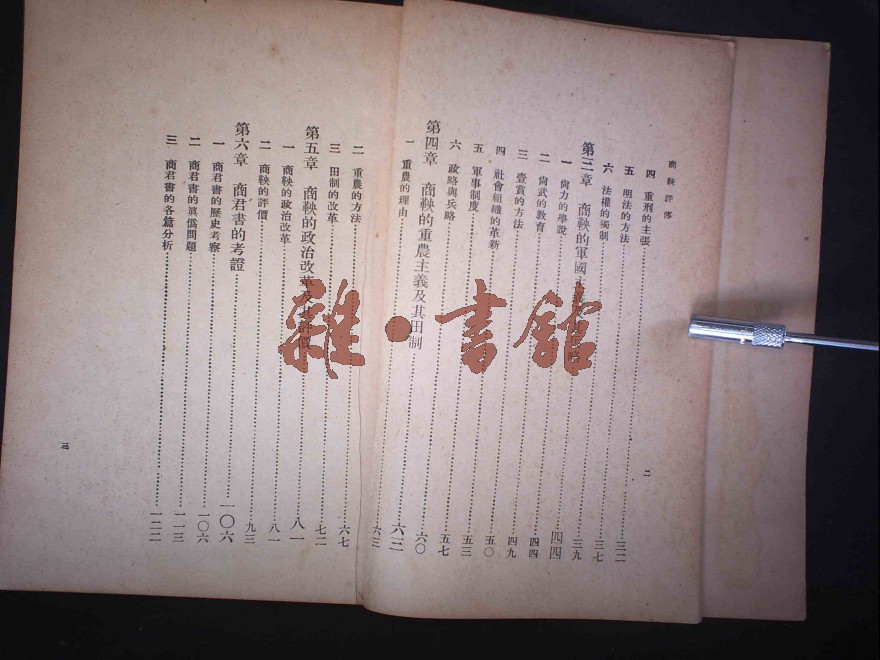 商鞅評傳
四 重刑的主張……三二
五 明法的方法……三七
六 法權的獨制……三九
第三章 商鞅的軍國主略……四四
一 尙力的學說……四四
二 尙武的敎育……四九
三 壹賞的方法……五〇
四 社會組織的革新……五三
五 軍事制度……五七
六 政略與兵略……六〇
第四章 商鞅的重農主義及其田制……六三
一 重農的理由……六三
二
二 重農的方法……六七
三 田制的改革……七二
第五章 商鞅的政治改革及……八一
一 商鞅的政治改革……八一
二 商鞅的評價……九三
第六章 商君書的考證……一〇六
一 商君書的歷史考察……一〇六
二 商君書的眞僞問題……一一三
三 商君書的各篇分析……一二二
三
雜·書館